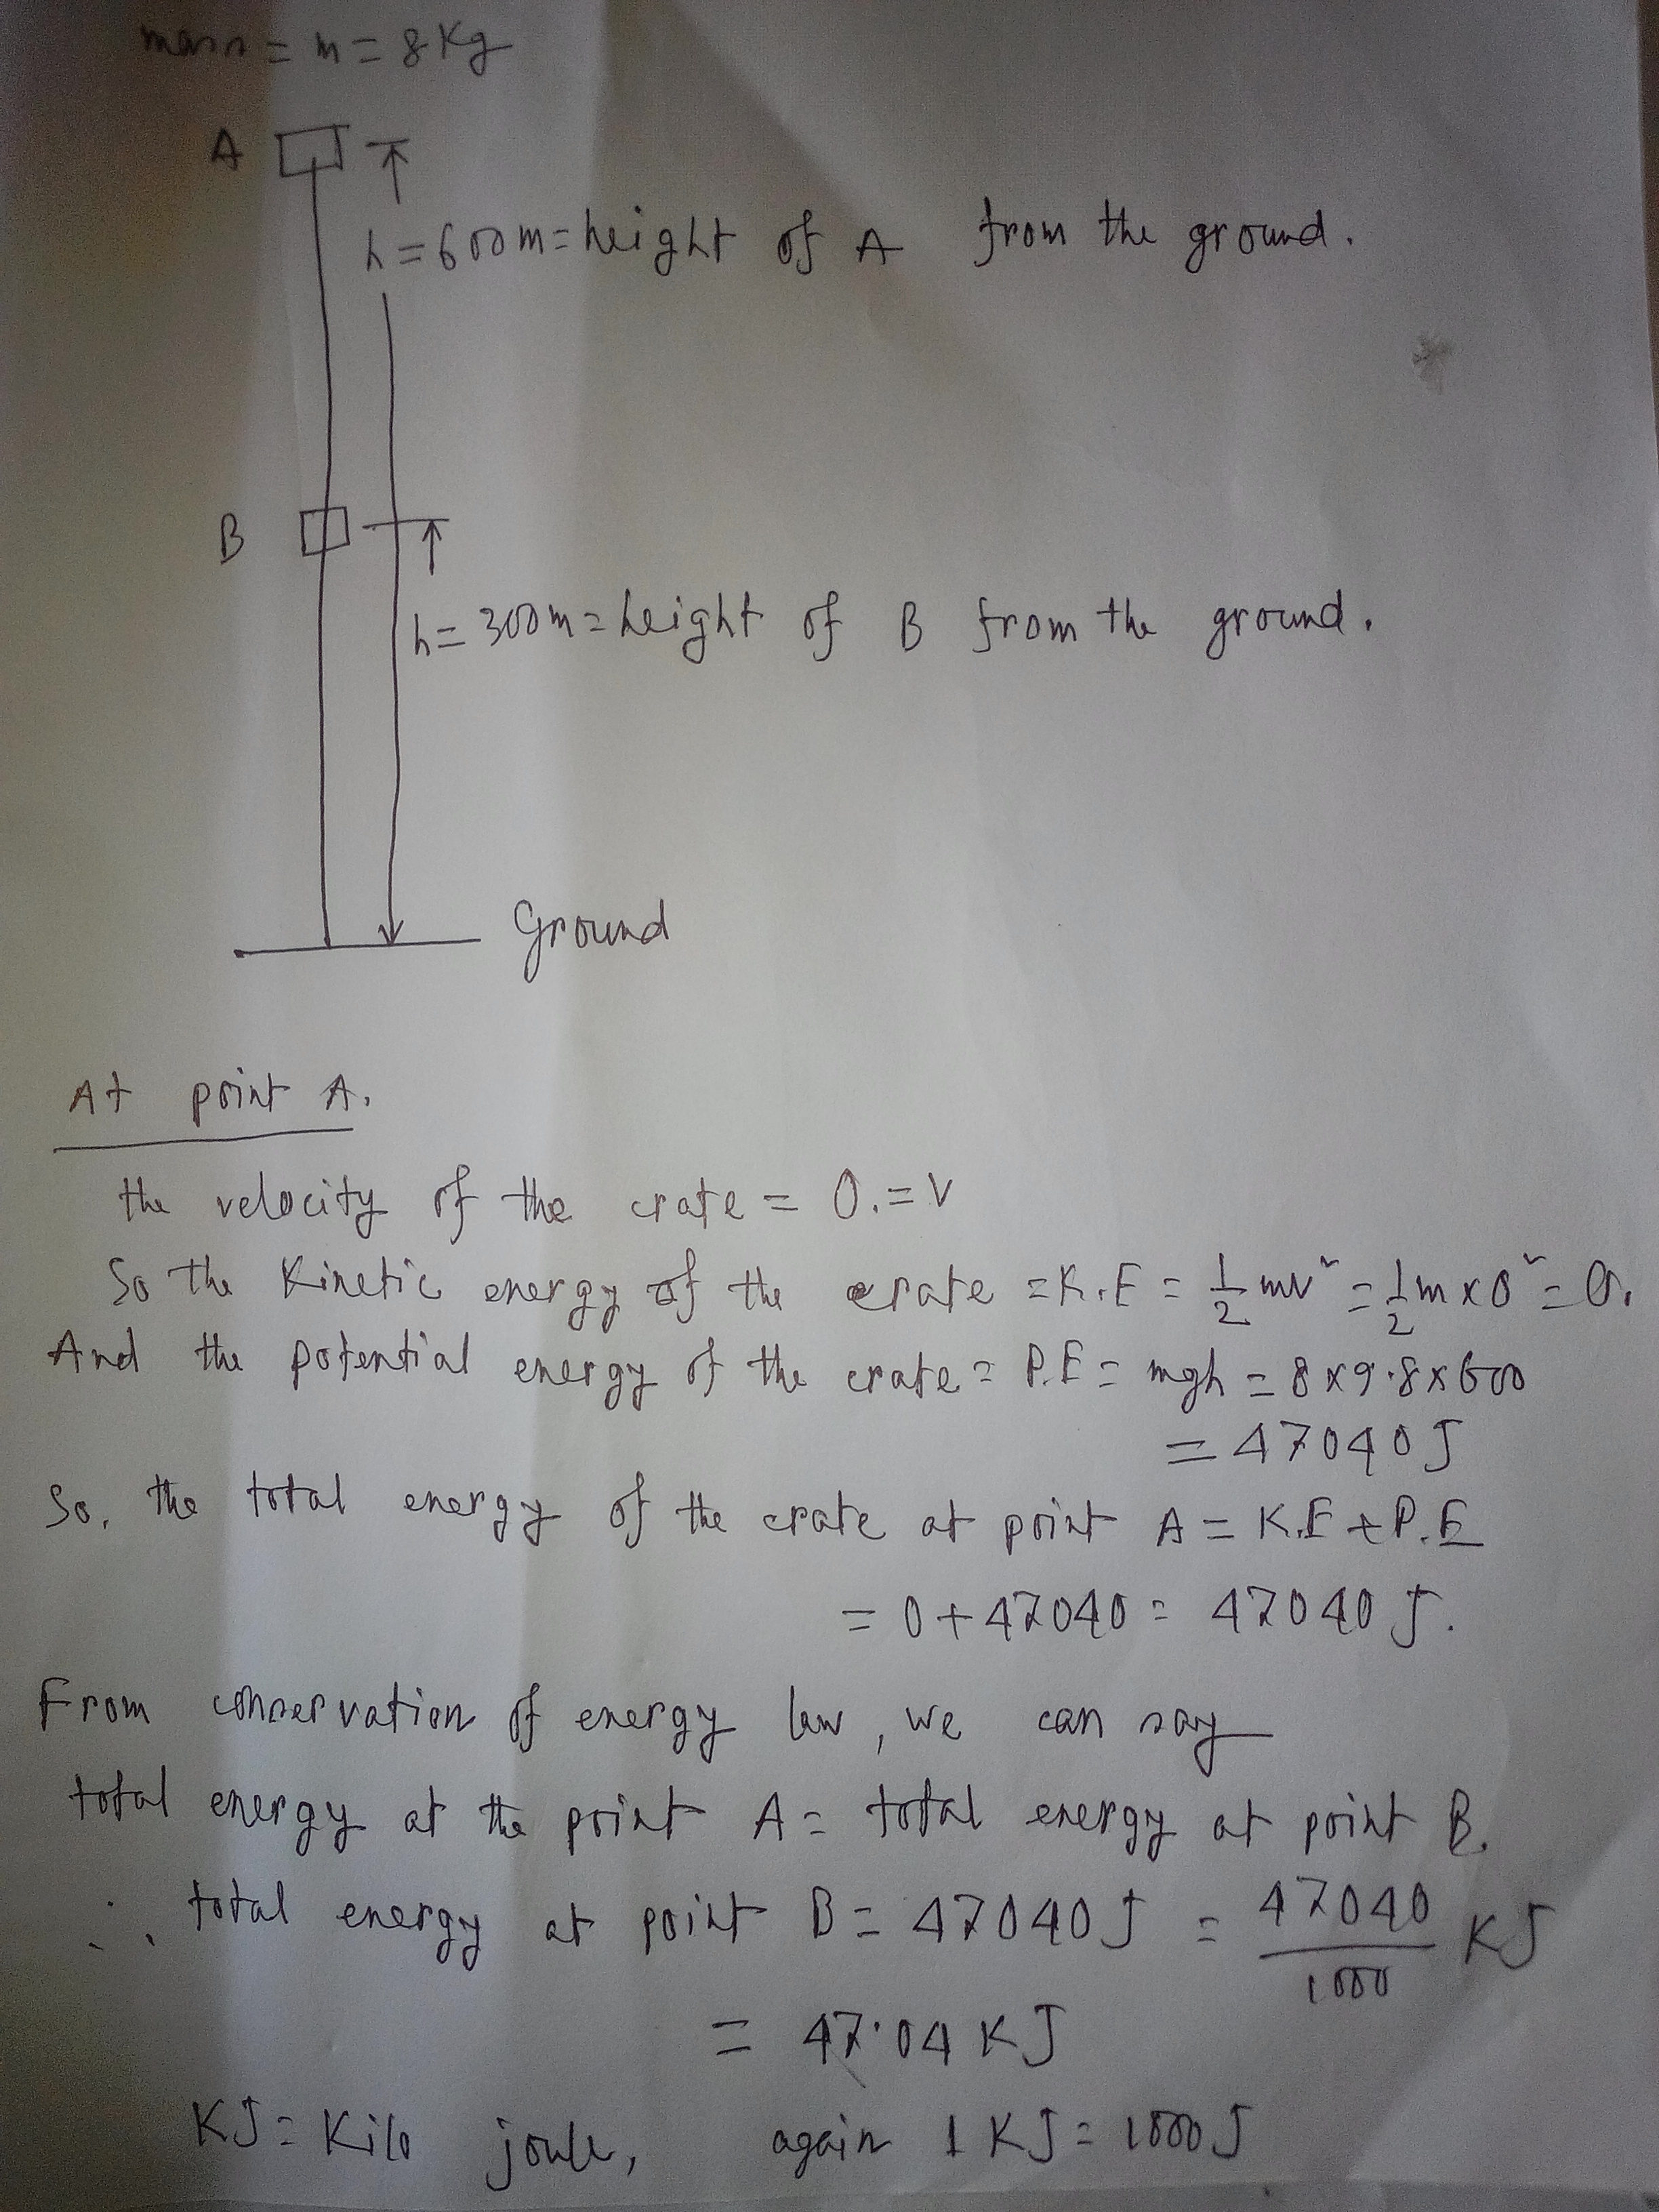 mass = m = 8 Kg
A
h = 600m = height of A from the ground.
B
h = 300m = height of B from the ground.
Ground
At point A.
the velocity of the crate = 0. = V
So the Kinetic energy of the crate = K.E = 1/2 mv² = 1/2 m x 0² = 0.
And the potential energy of the crate = P.E = mgh = 8 x 9.8 x 600
= 47040 J
So, the total energy of the crate at point A = K.E + P.E
= 0 + 47040 = 47040 J.
From conservation of energy law, we can say
total energy at the point A = total energy at point B.
∴ total energy at point B = 47040 J = 47040/1000 KJ
= 47.04 KJ
KJ = Kilo joule, again 1 KJ = 1000 J